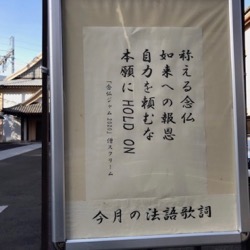 称える念仏
如来への報恩
自力を頼むな
本願に HOLD ON
「念仏ジャム2020」僧スクリーム
今月の法語歌詞